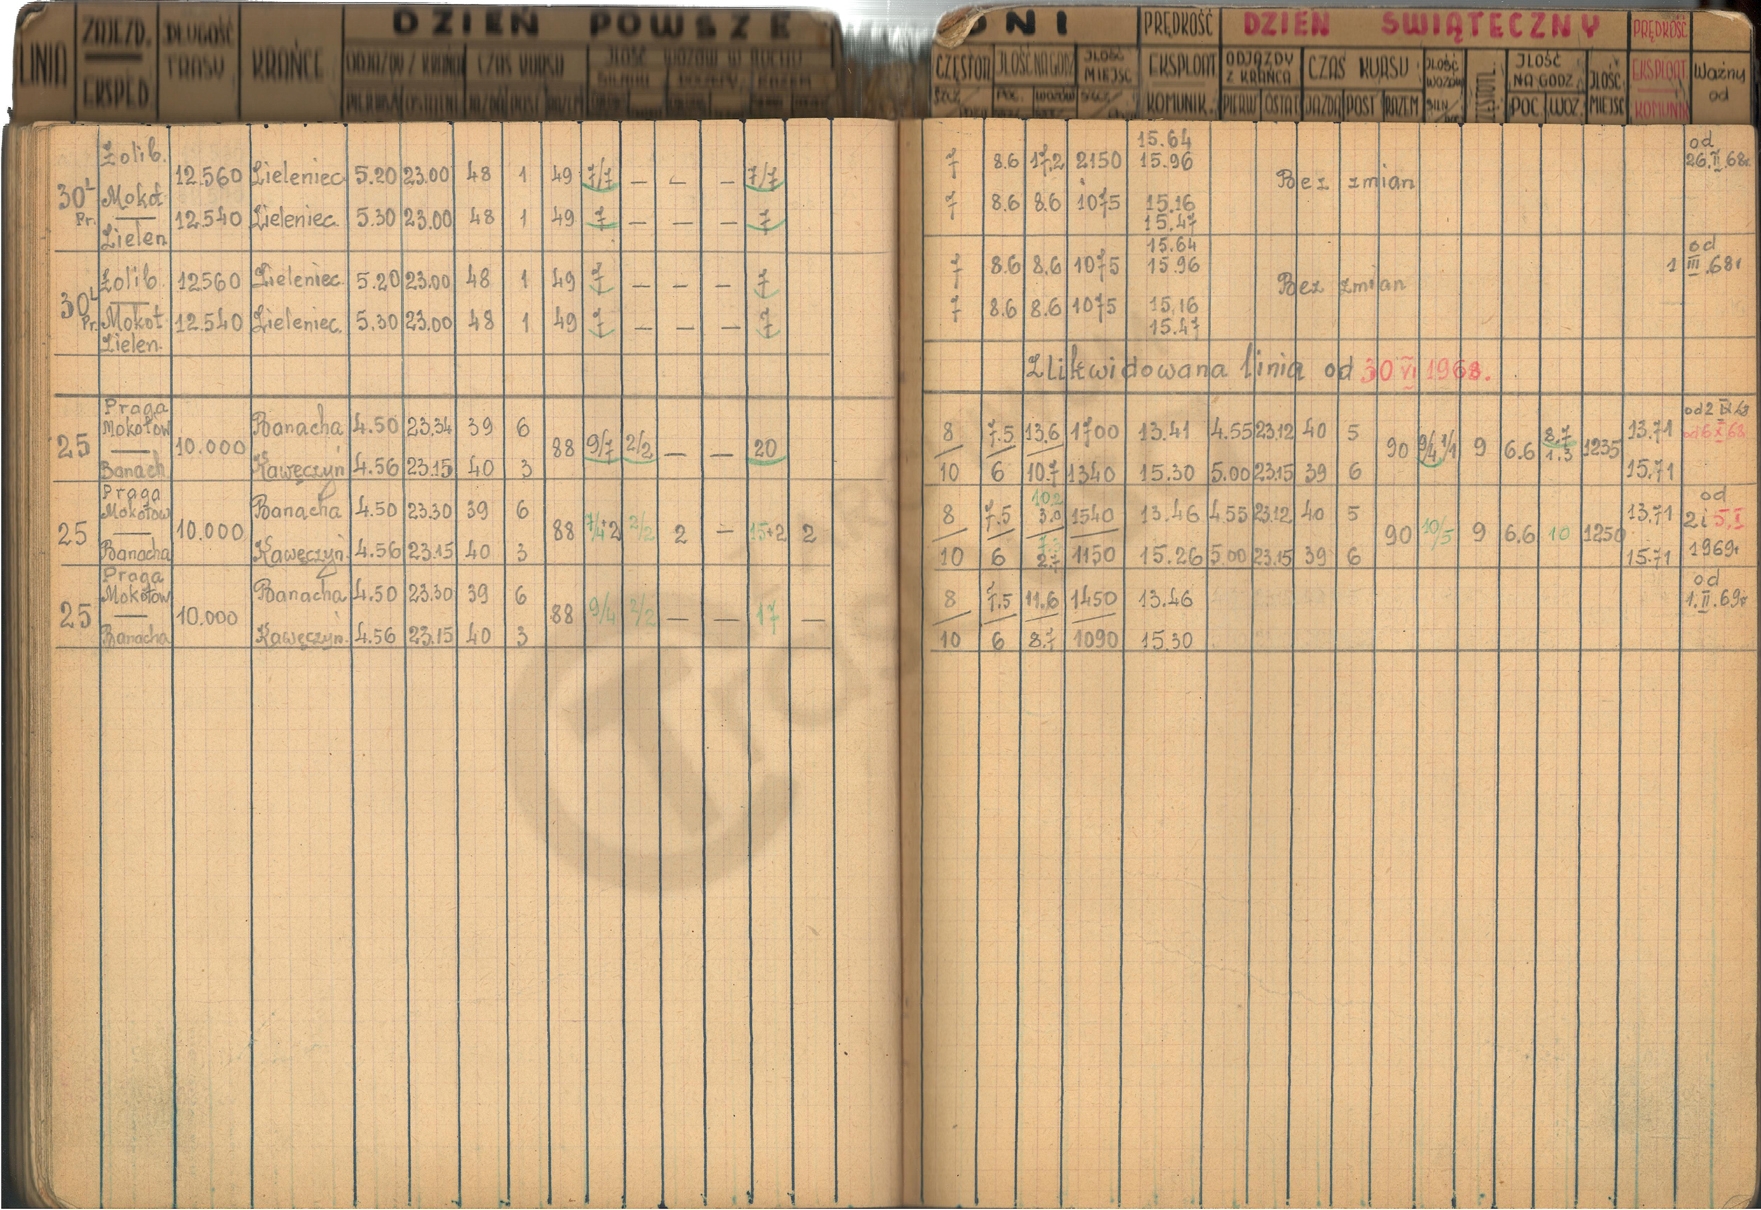 LINIA ZAJEZD. EKSPED. DŁUGOŚĆ TRASY KRAŃCE DZIEŃ POWSZE DNI PRĘDKOŚĆ DZIEŃ ŚWIĄTECZNY PRĘDKOŚĆ
ODJAZDY Z KRAŃCA CZAS KURSU ILOŚĆ WOZÓW W RUCHU CZĘSTOŚ ILOŚĆ NA GODZ ILOŚĆ MIEJSC EKSPLOAT. ODJAZDY Z KRAŃCA CZAS KURSU ILOŚĆ WOZÓW ILOŚĆ NA GODZ. ILOŚĆ MIEJSC EKSPLOAT. Ważny od
PIERWS OSTATNI JAZDA POST RAZEM POC. WOZÓW KOMUNIK. PIERW OSTAT JAZDA POST RAZEM POC WOZ. KOMUNIK
30L Pr. Żolib. Mokot — Zielen
12.560 Zieleniec 5.20 23.00 48 1 49 7/7 — — — 7/7 7 8.6 17,2 2150 15.64 15.96 Bez zmian od 26.II.68r
12.540 Zieleniec 5.30 23.00 48 1 49 7 — — — 7 7 8.6 8.6 1075 15.16 15.47
30L Pr. Żolib. — Mokot Zielen.
12560 Zieleniec 5.20 23.00 48 1 49 7 — — — 7 7 8.6 8,6 1075 15.64 15.96 Bez zmian od 1 III.68r
12.540 Zieleniec 5.30 23.00 48 1 49 7 — — — 7 7 8.6 8.6 1075 15,16 15.47
Zlikwidowana linia od 30 VI 1968.
25 Praga Mokotów — Banach 10.000
Banacha 4.50 23.34 39 6 88 9/7 2/2 — — 20 8 7.5 13,6 1700 13.41 4.55 23.12 40 5 90 9/4 1/1 9 6.6 8.7 1.3 1235 13.71 od 2 IX 68 od 6 X 68
Kawęczyń 4.56 23.15 40 3 10 6 10.7 1340 15.30 5.00 23.15 39 6 15.71
25 Praga Mokotów — Banacha 10.000
Banacha 4.50 23.30 39 6 88 7/4+2 2/2 2 — 15+2 2 8 7.5 10.2 3.0 1540 13.46 4.55 23.12 40 5 90 10/5 9 6.6 10 1250 13.71 od 2 i 5.I 1969r
Kawęczyń 4.56 23.15 40 3 10 6 2.7 1150 15.26 5.00 23.15 39 6 15.71
25 Praga Mokotów — Banacha 10.000
Banacha 4.50 23.30 39 6 88 9/4 2/2 — — 17 — 8 7.5 11,6 1450 13.46 od 1.II.69r
Kawęczyń. 4.56 23.15 40 3 10 6 8.7 1090 15.30